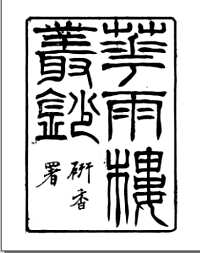 華雨樓
叢鈔
研香
署